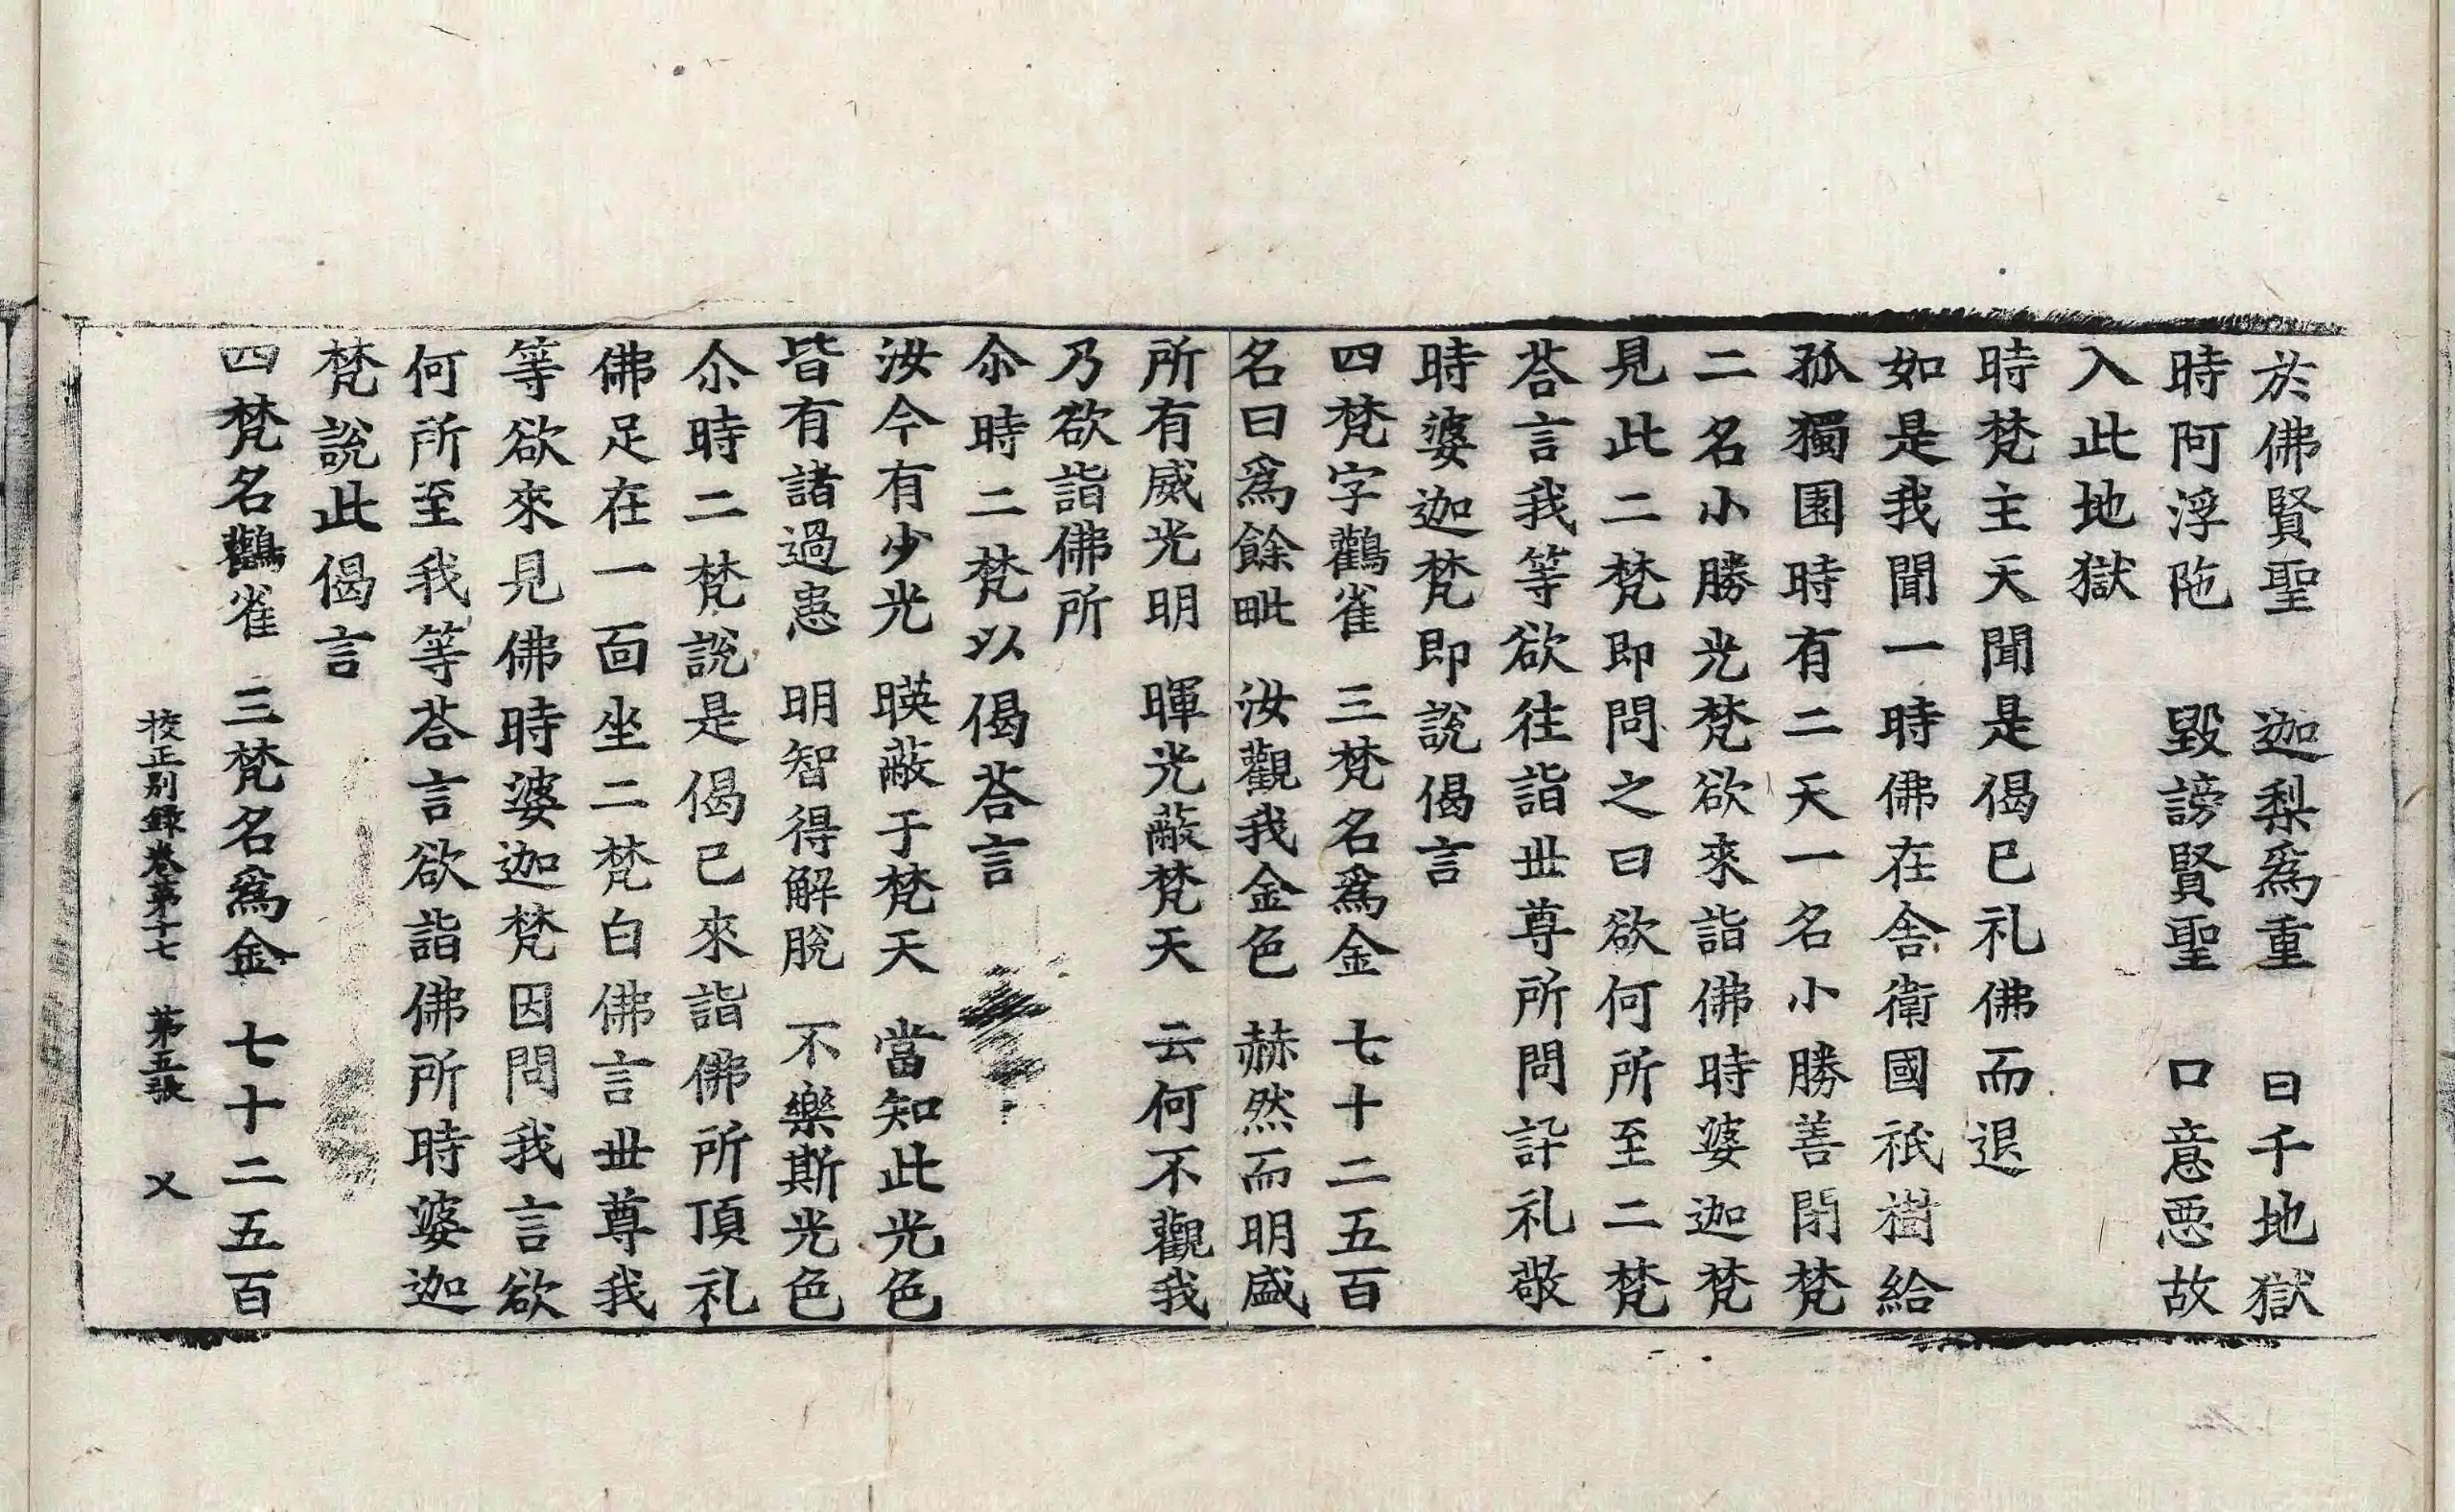 於佛賢聖　迦梨爲重　曰千地獄
時阿浮陁　毀謗賢聖　口意惡故
入此地獄
時梵主天聞是偈已礼佛而退
如是我聞一時佛在舍衛國祇樹給
孤獨園時有二天一名小勝善閇梵
二名小勝光梵欲來詣佛時婆迦梵
見此二梵即問之曰欲何所至二梵
荅言我等欲往詣丗尊所問訊礼敬
時婆迦梵即說偈言
四梵字鸛雀　三梵名爲金　七十二五百
名曰爲餘毗　汝觀我金色　赫然而明盛
所有威光明　暉光蔽梵天　云何不觀我
乃欲詣佛所
尒時二梵以偈荅言
汝今有少光　暎蔽于梵天　當知此光色
皆有諸過患　明智得解脫　不樂斯光色
尒時二梵說是偈已來詣佛所頂礼
佛足在一面坐二梵白佛言丗尊我
等欲來見佛時婆迦梵因問我言欲
何所至我等荅言欲詣佛所時婆迦
梵說此偈言
四梵名鸛雀　三梵名爲金　七十二五百
校正別錄卷第十七　第五張　乂